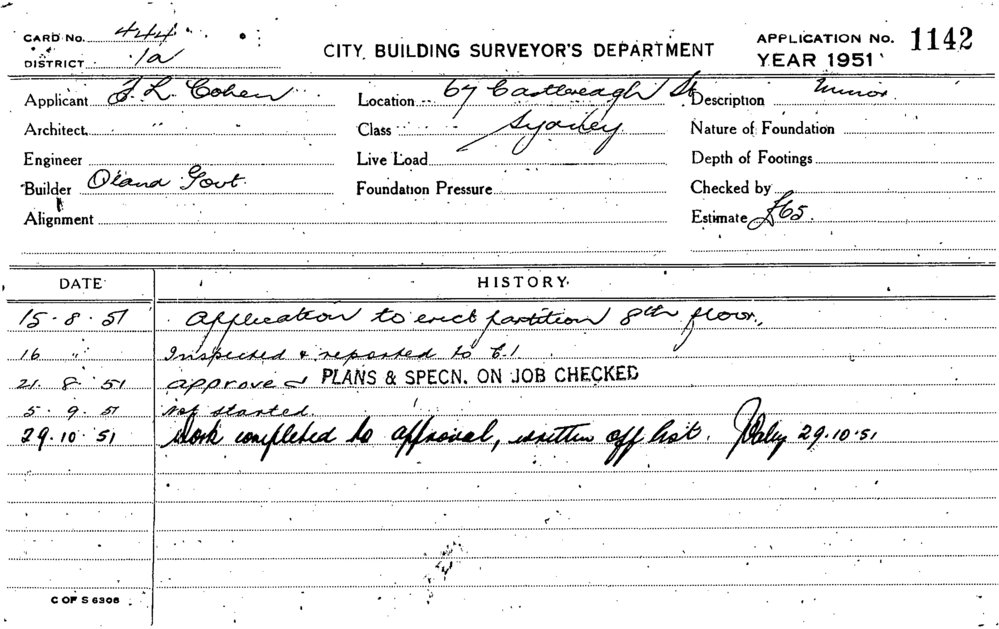 CARD No. 444
DISTRICT 1a
CITY BUILDING SURVEYOR'S DEPARTMENT
APPLICATION No. 1142
YEAR 1951
Applicant F. L. Cohen
Location 67 Castlereagh St
Description Minor
Architect "
Class Sydney
Nature of Foundation
Engineer
Live Load
Depth of Footings
Builder Govt.
Foundation Pressure
Checked by
Alignment
Estimate £65.
DATE HISTORY
15-8-51 Application to erect partition 8th floor,
16 " Inspected & reported to
21. 8. 51 approved PLANS & SPECN. ON JOB CHECKED
5. 9. 51 not started.
29.10.51 Work completed to approval, written off list. 29.10.51
C OF S 6306